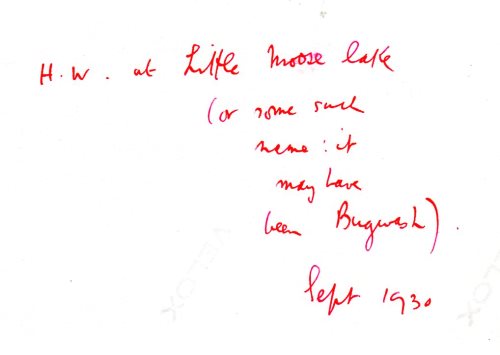 H.W. at Little Moose lake
(or some such
name: it
may have
been Bugwash).
Sept 1930
VELOX
VELOX